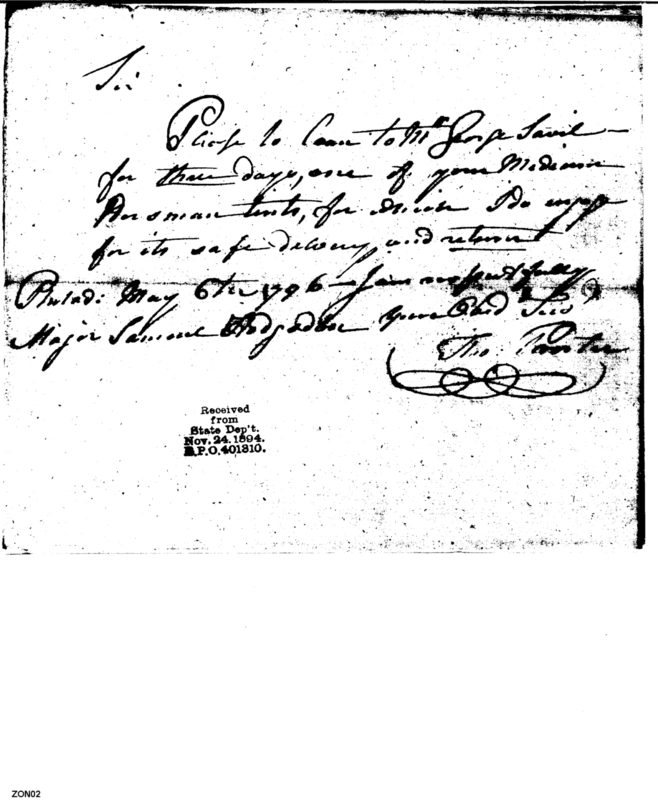 Sir
Please to Loan to Mr George Savil
for three days, one of your
Horsman tents, for which I do engage
for its safe delivery and return
Philad: May 6th 1796 I am respectfully
Major Samuel Hodgdon your Obed Serv
Tho
Received
from
State Dep't.
Nov. 24. 1894.
R.P.O. 401310.
ZON02